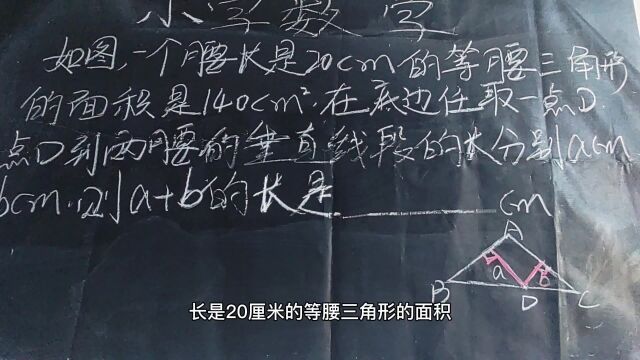 小学数学
如图,一个腰长是20cm的等腰三角形
的面积是140cm².在底边任取一点D
点D到两腰的垂直线段的长分别acm
bcm.则a+b的长是____cm
A
a
b
B
D
C
长是20厘米的等腰三角形的面积